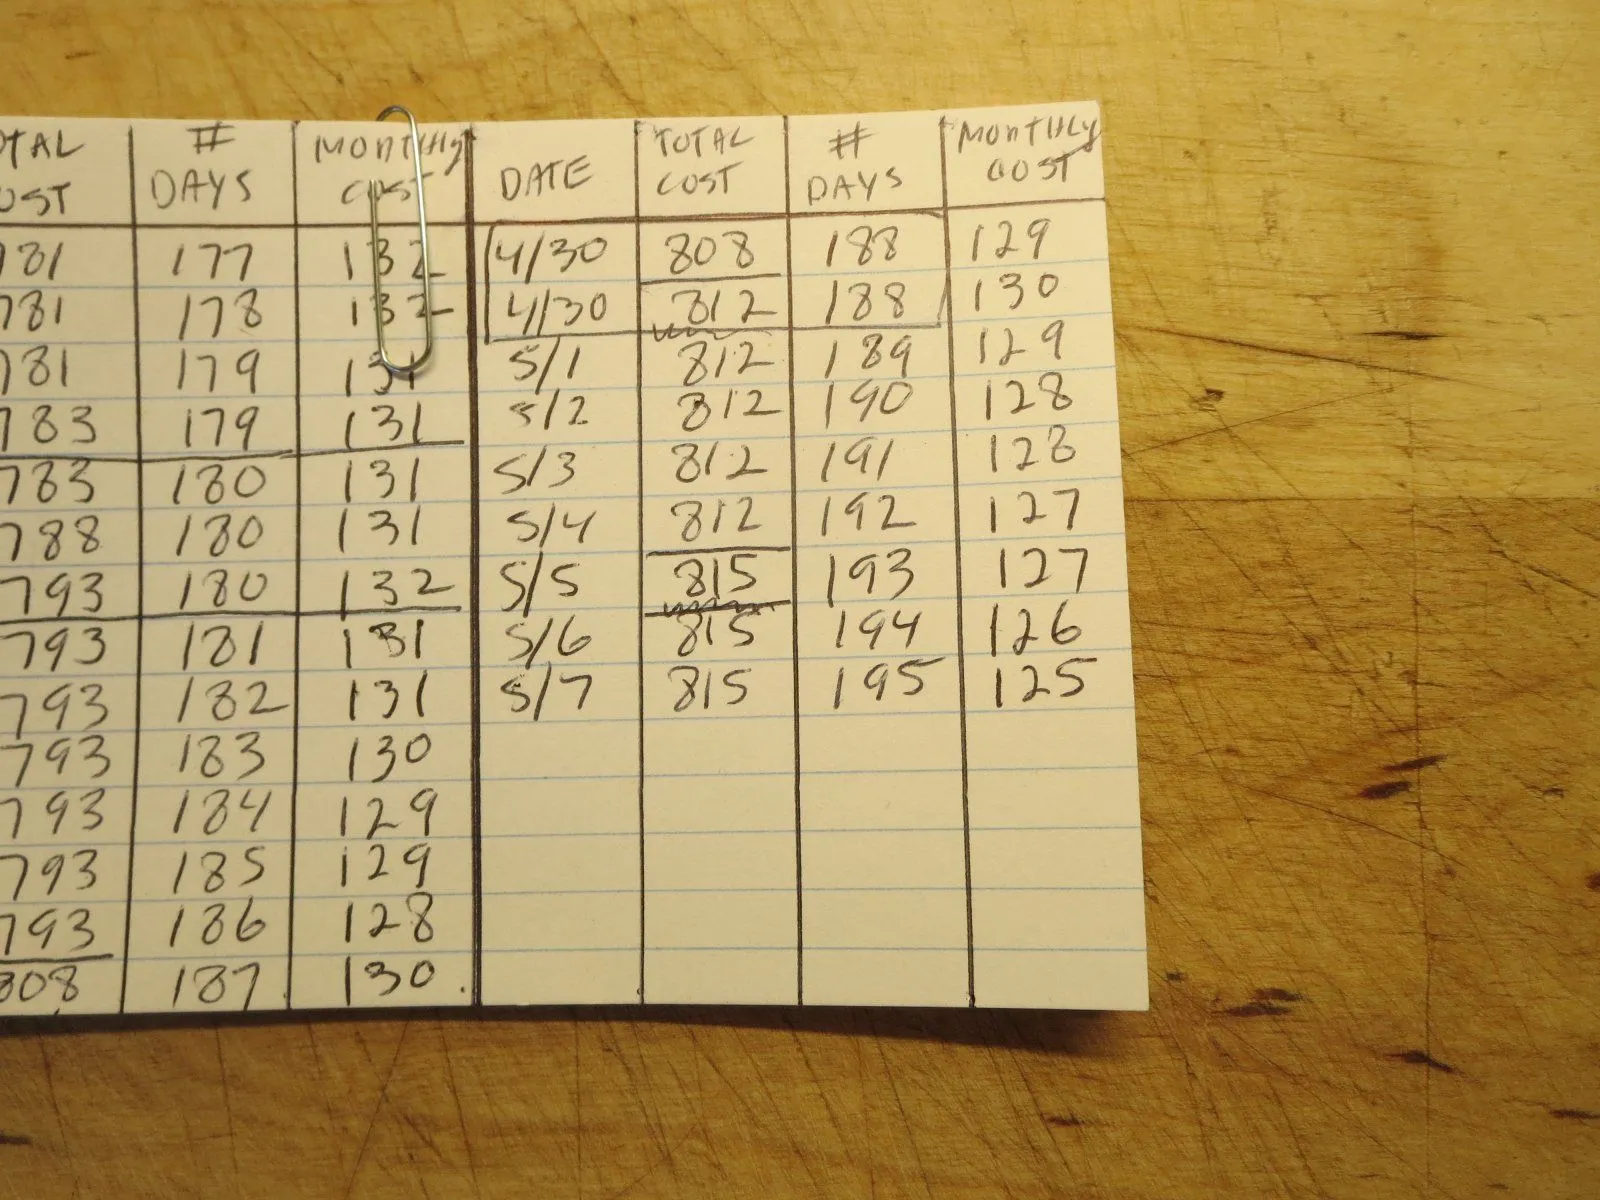 OTAL COST # DAYS MONTHLY COST DATE TOTAL COST # DAYS MONTHLY COST
781 177 132 4/30 808 188 129
781 178 132 4/30 812 188 130
781 179 131 5/1 812 189 129
783 179 131 5/2 812 190 128
783 180 131 5/3 812 191 128
788 180 131 5/4 812 192 127
793 180 132 5/5 815 193 127
793 181 131 5/6 815 194 126
793 182 131 5/7 815 195 125
793 183 130
793 184 129
793 185 129
793 186 128
808 187 130